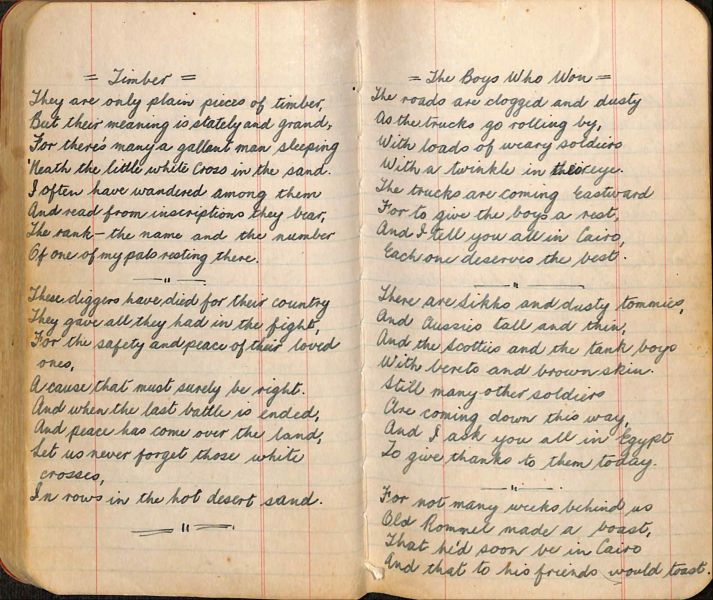 = Timber =
They are only plain pieces of timber,
But their meaning is stately and grand,
For there's many a gallant man sleeping
'Neath the little white Cross in the sand.
I often have wandered among them
And read from inscriptions they bear,
The rank – the name and the number
Of one of my pals resting there.
— " —
These diggers have died for their country
They gave all they had in the fight,
For the safety and peace of their loved
ones,
A cause that must surely be right.
And when the last battle is ended,
And peace has come over the land,
Let us never forget those white
crosses,
In rows in the hot desert sand.
— " —
= The Boys Who Won =
The roads are clogged and dusty
As the trucks go rolling by,
With loads of weary soldiers
With a twinkle in their eye.
The trucks are coming Eastward
For to give the boys a rest,
And I tell you all in Cairo,
Each one deserves the best.
— " —
There are Sikhs and dusty tommies,
And Aussies tall and thin,
And the Scotties and the tank boys
With berets and brown skin.
Still many other soldiers
Are coming down this way,
And I ask you all in Egypt
To give thanks to them today.
— " —
For not many weeks behind us
Old Rommel made a boast,
That he'd soon be in Cairo
And that to his friends would toast.